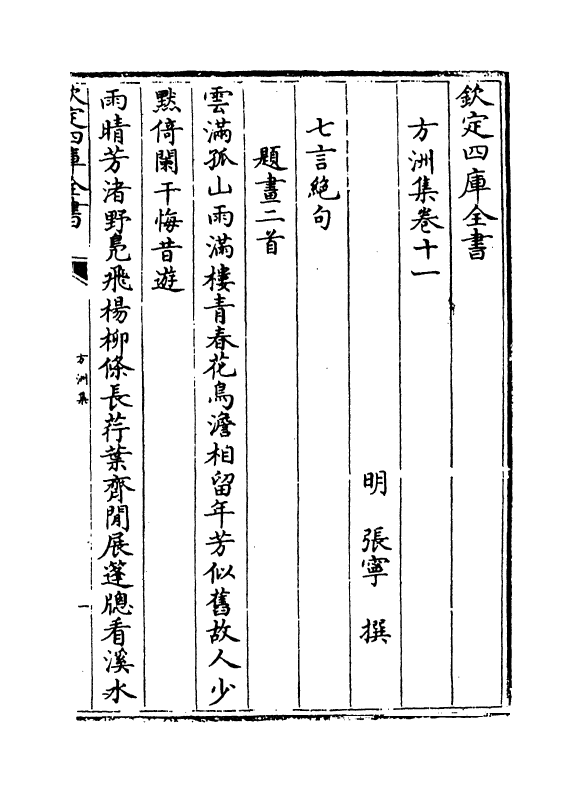 欽定四庫全書
方洲集卷十一
明 張寧 撰
七言絶句
題畫二首
雲滿孤山雨滿樓青春花鳥澹相留年芳似舊故人少
黙倚闌干悔昔遊
雨晴芳渚野鳬飛楊柳條長荇葉齊閒展蓬牕看溪水
欽定四庫全書
方洲集
一